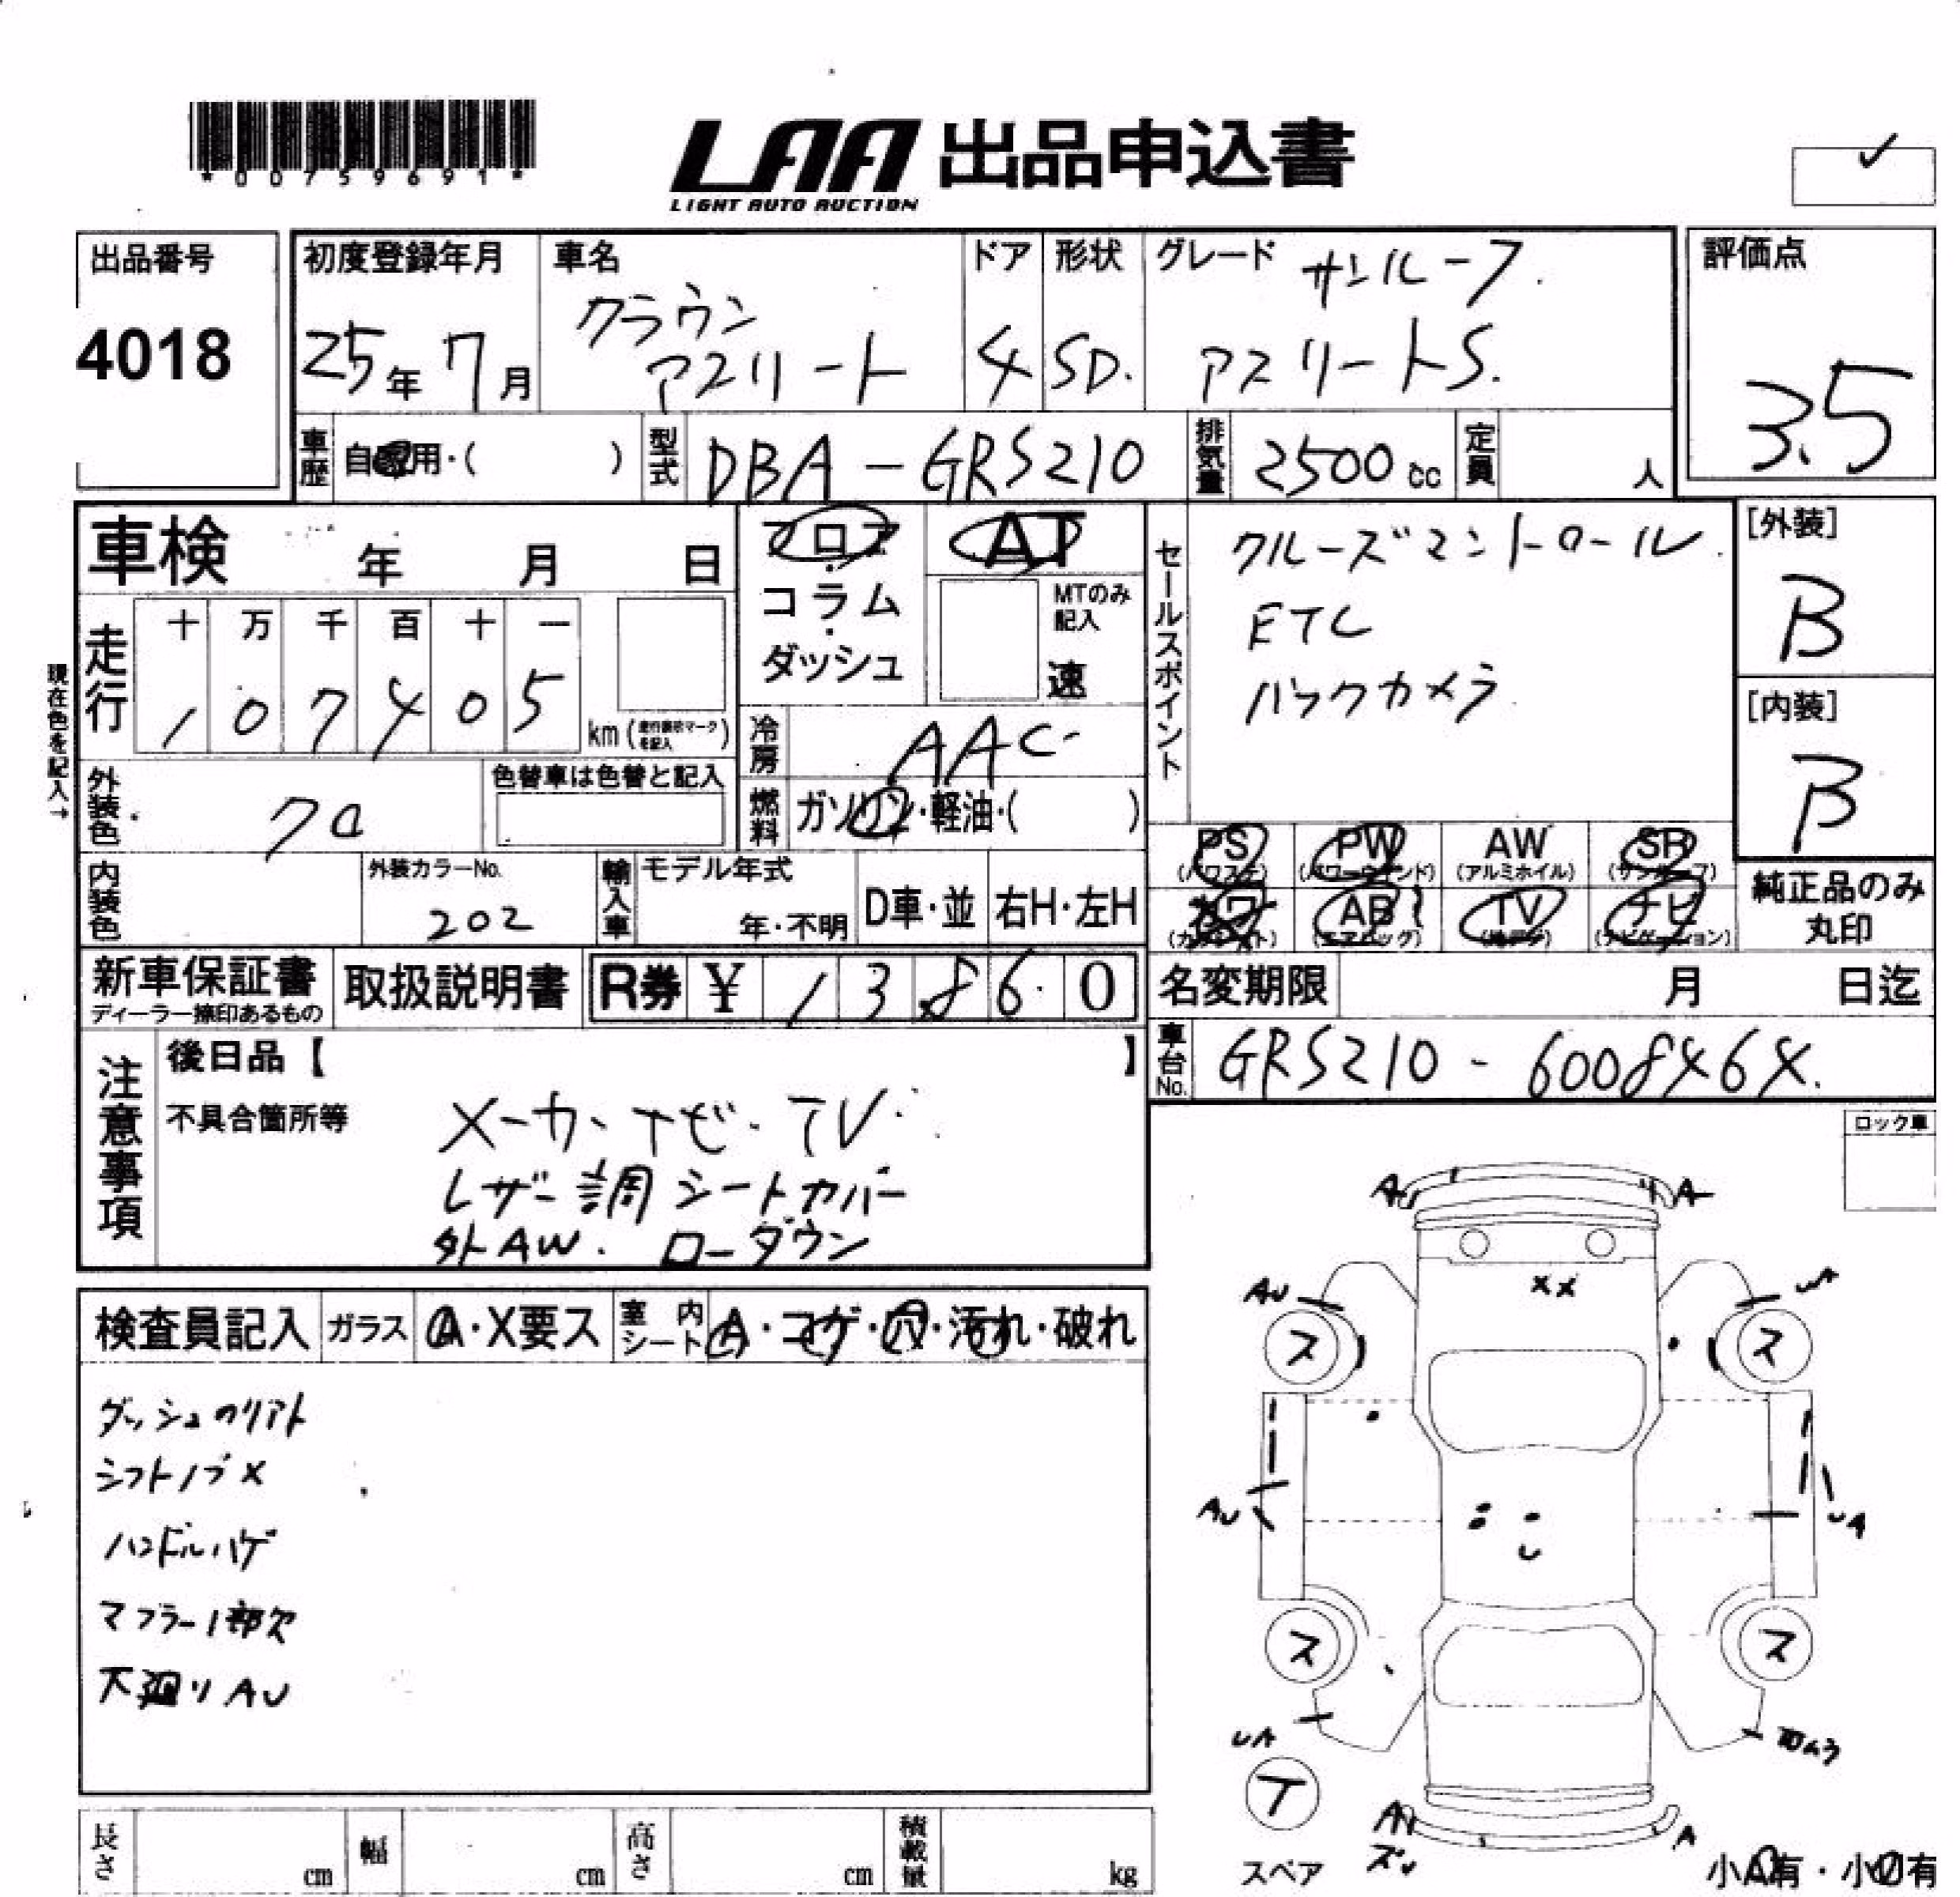 *00759691*
LAA 出品申込書
LIGHT AUTO AUCTION
出品番号
4018
初度登録年月
25年 7月
車名
クラウン
アスリート
ドア
4
形状
SD.
グレード サンルーフ.
アスリートS.
評価点
3.5
車歴
自家用・( )
型式
DBA-GRS210
排気量
2500cc
定員
人
車検 年 月 日
走行
十 万 千 百 十 一
1 0 7 4 0 5
km (走行表示マークを記入)
現在色を記入→
フロア
・
コラム
・
ダッシュ
AT
MTのみ
記入
速
冷房
AAC
燃料
ガソリン・軽油・( )
セールスポイント
クルーズコントロール
ETC
バックカメラ
[外装]
B
[内装]
B
外装色
クロ
色替車は色替と記入
内装色
外装カラーNo.
202
輸入車
モデル年式
年・不明
D車・並
右H・左H
PS
(パワステ)
PW
(パワーウインド)
AW
(アルミホイル)
SR
(サンルーフ)
カワ
(カワシート)
AB
(エアバッグ)
TV
(地デジ)
ナビ
(ナビゲーション)
純正品のみ
丸印
新車保証書
ディーラー捺印あるもの
取扱説明書
R券 ¥ 13,860
名変期限 月 日迄
車台No.
GRS210-6008464.
注意事項
後日品【 】
不具合箇所等
メーカーナビ・TV.
レザー調シートカバー
外AW. ローダウン
ロック車
検査員記入
ガラス
A・X要ス
室内シート
A・コゲ・穴・汚れ・破れ
ダッシュのリアト
シフトノブX
ハンドルハゲ
マフラー1部欠
下廻りAU
A A
AU UA
XX
ス ス
AU UA
ス ス
UA
T
スペア
AU
A
小A有・小U有
長さ cm
幅 cm
高さ cm
積載量 kg